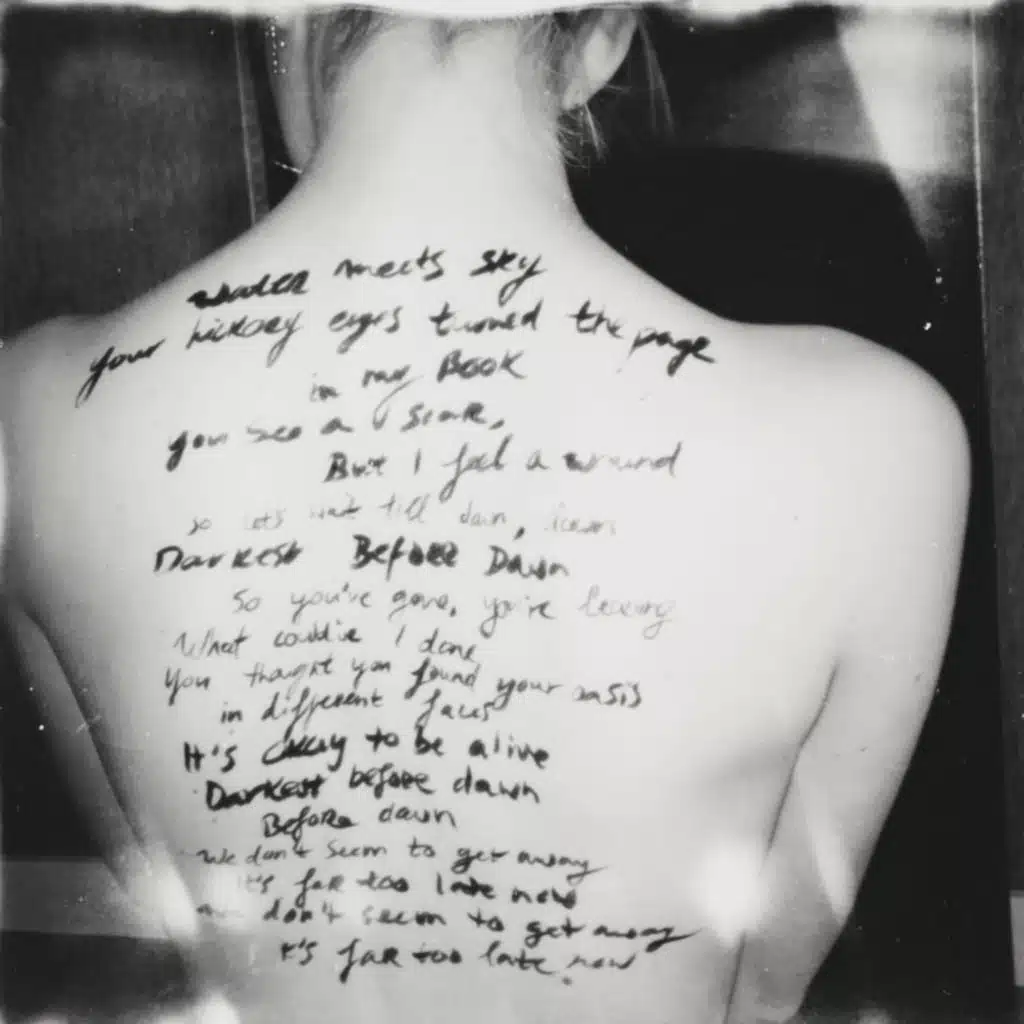 water meets sky
your hickory eyes turned the page
in my BOOK
you see a scar,
But I feel a wound
so lets wait till dawn, dawn
Darkest Before Dawn
So you've gone, you're leaving
What could've I done
You thought you found your oasis
in different faces
It's okay to be alive
Darkest before dawn
Before dawn
We don't seem to get away
It's far too late now
don't seem to get away
It's far too late now